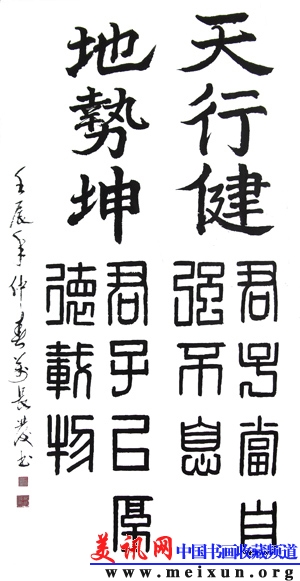 天行健
君子當自
強不息
地勢坤
君子以厚
德載物
壬辰年仲春 長發书
美讯网 中国书画收藏频道
www.meixun.org